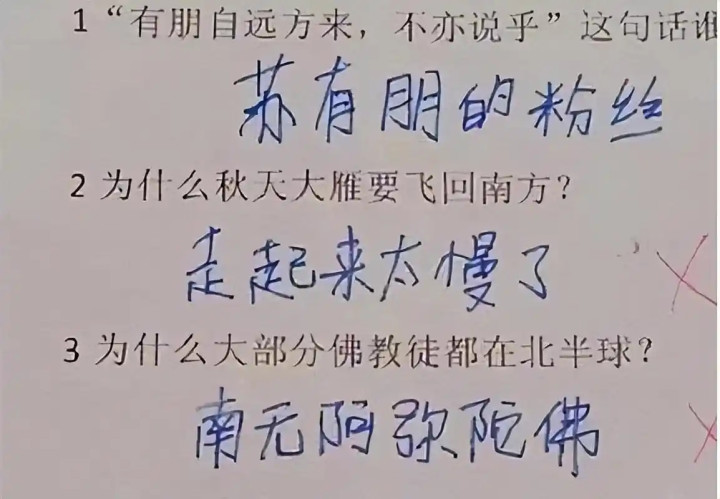 1 “有朋自远方来，不亦说乎”这句话谁
苏有朋的粉丝
2 为什么秋天大雁要飞回南方？
走起来太慢了
3 为什么大部分佛教徒都在北半球？
南无阿弥陀佛